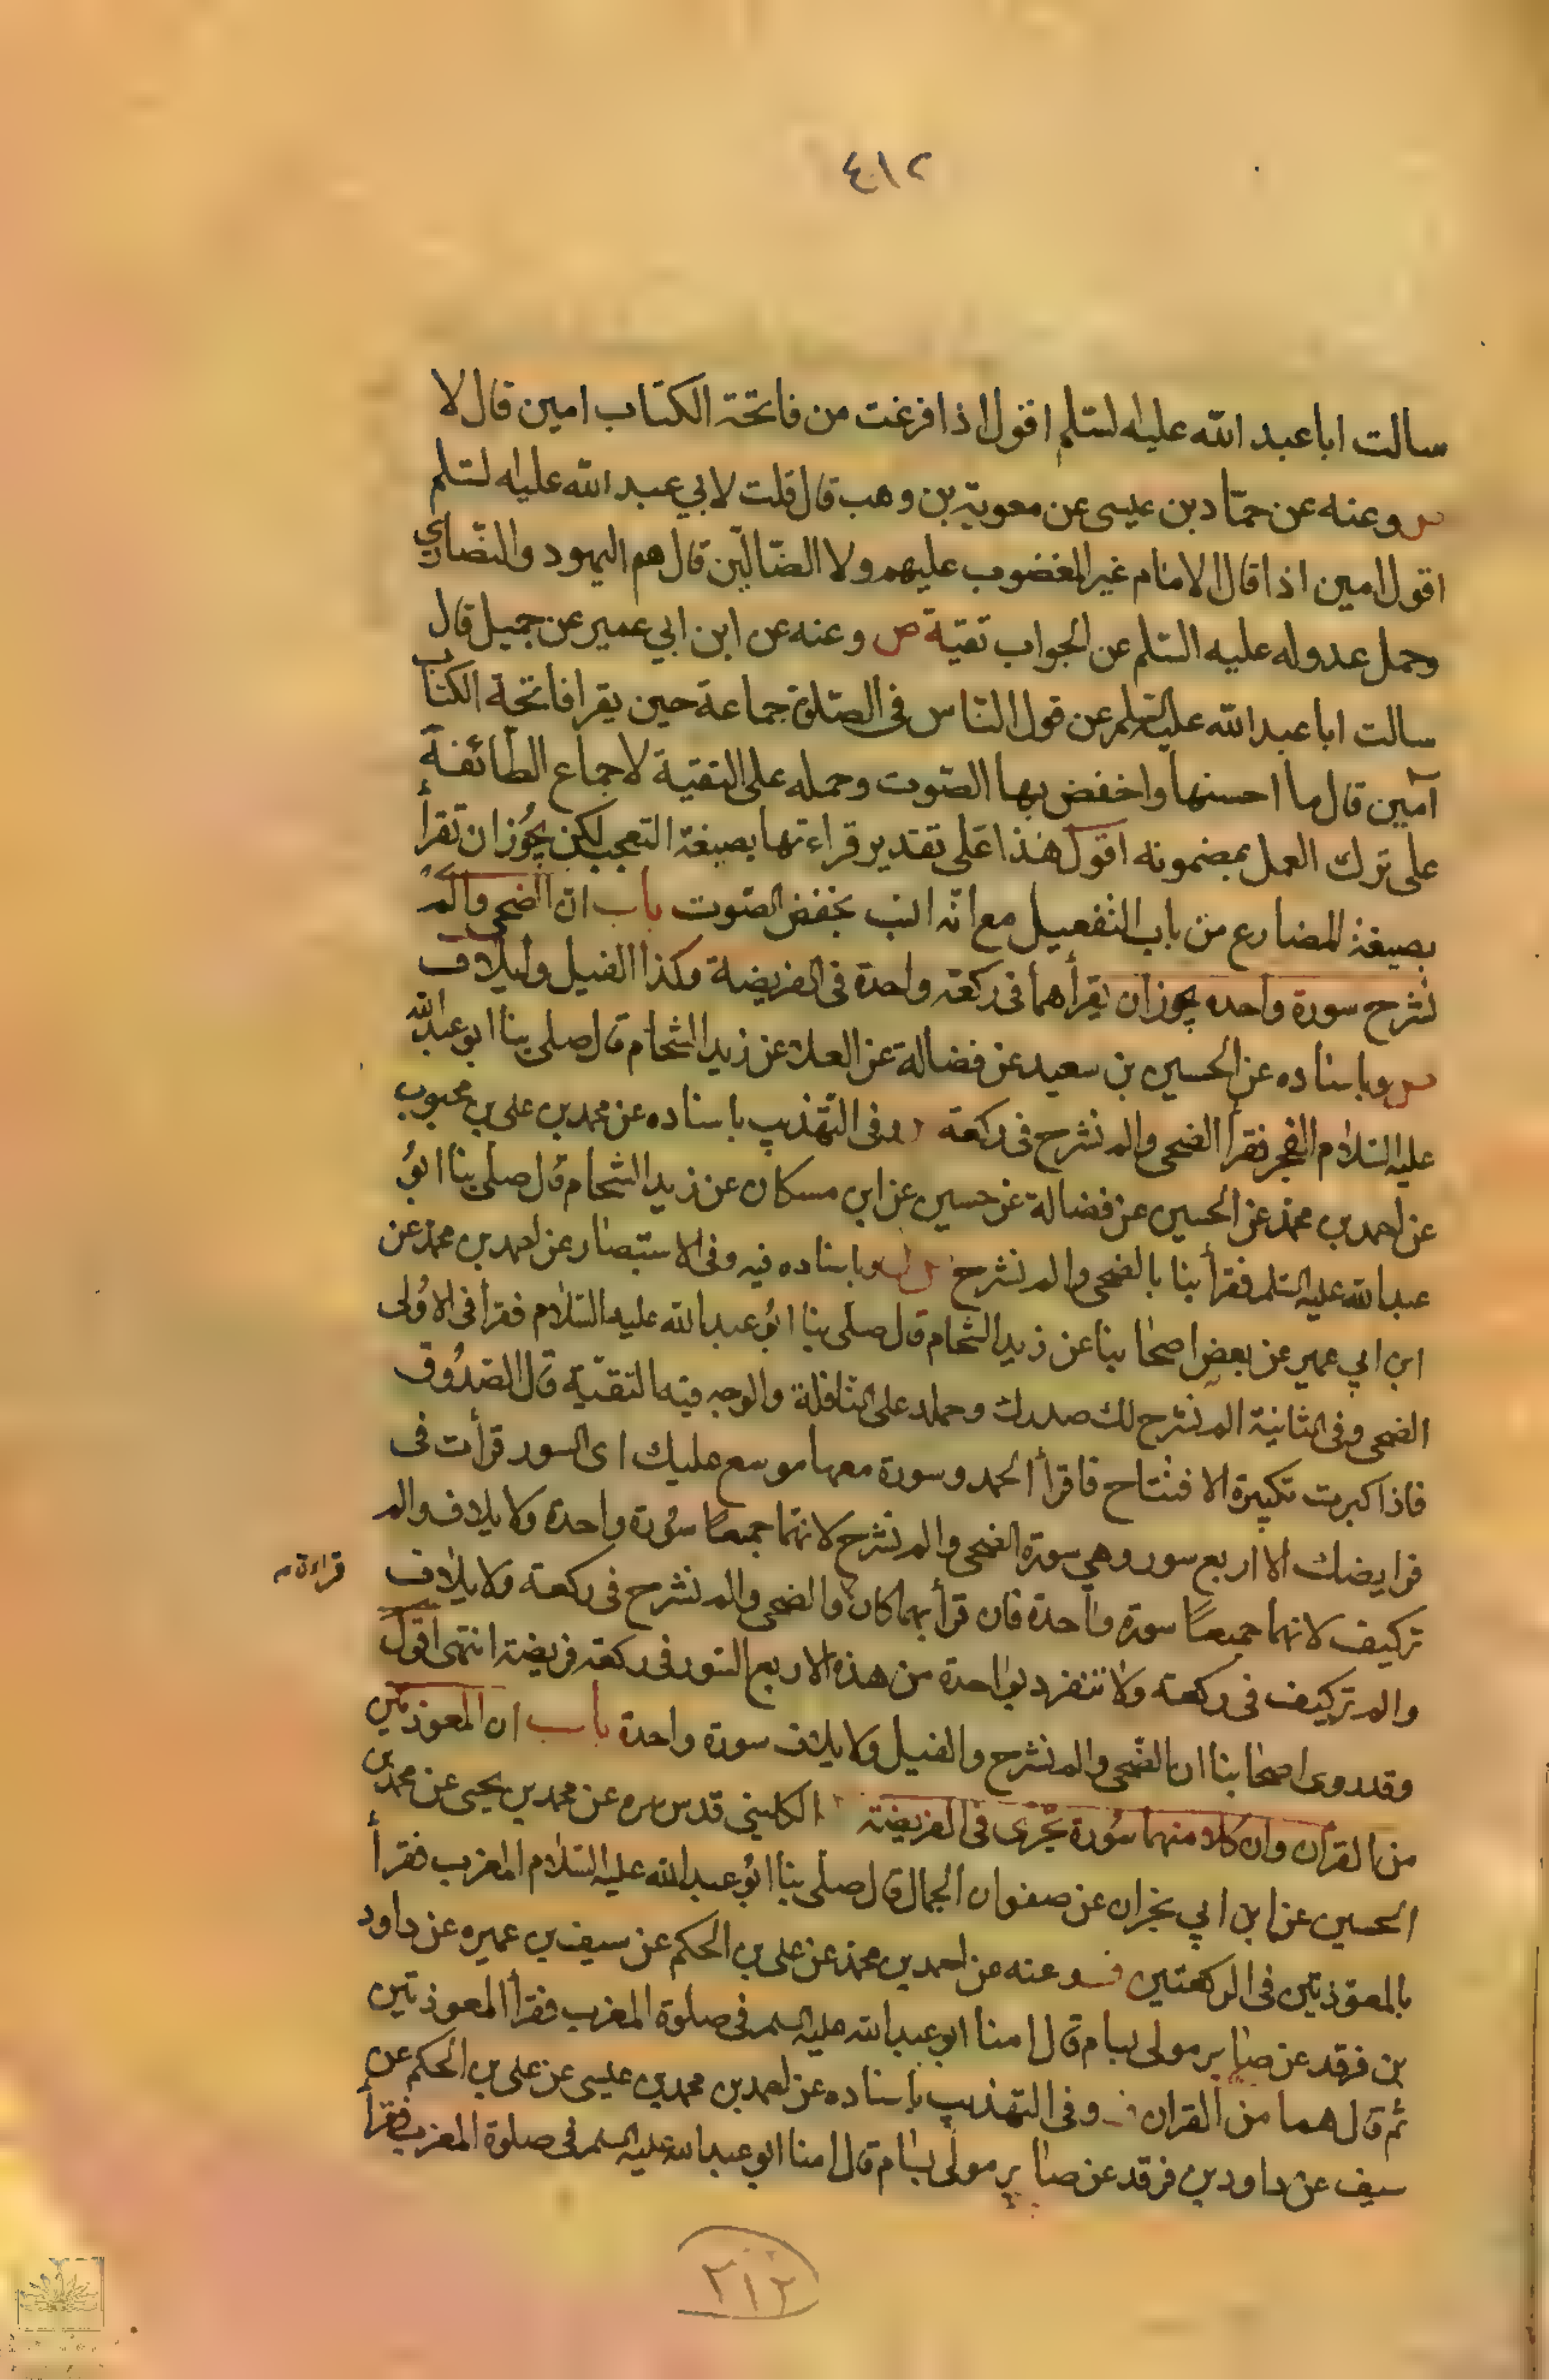 ٤١٢
سالت ابا عبد الله عليه السلم اقول اذا فرغت من فاتحة الكتاب امين قال لا
وعنه عن حماد بن عيسى عن معوية بن وهب قال قلت لابي عبد الله عليه السلم
اقول امين اذا قال الامام غير المغضوب عليهم ولا الضالين قال هم اليهود والنصارى
وحمل عدوله عليه السلم عن الجواب تقية ص وعنه عن ابن ابي عمير عن جميل قال
سالت ابا عبد الله عليه السلم عن قول الناس في الصلوة جماعة حين يقرا فاتحة الكتاب
آمين قال ما احسنها واخفض بها الصوت وحمله على التقية لاجماع الطائفة
على ترك العمل بمضمونه اقول هذا على تقدير قراءتها بصيغة التعجب لكن يجوز ان تقرأ
بصيغة المضارع من باب التفعيل مع انه انسب بخفض الصوت باب ان الضحى والم
نشرح سورة واحده يجوز ان يقرأهما في ركعة واحدة في الفريضة وكذا الفيل ولايلاف
وباسناده عن الحسين بن سعيد عن فضالة عن العلا عن زيد الشحام قال صلى بنا ابو عبد الله
عليه السلام الفجر فقرأ الضحى والم نشرح في ركعة وفي التهذيب باسناده عن محمد بن علي بن محبوب
عن احمد بن محمد عن الحسين عن فضالة عن حسين عن ابن مسكان عن زيد الشحام قال صلى بنا ابو
عبد الله عليه السلم فقرأ بنا بالضحى والم نشرح وباسناده فيه وفي الاستبصار عن احمد بن محمد عن
ابن ابي عمير عن بعض اصحابنا عن زيد الشحام قال صلى بنا ابو عبد الله عليه السلام فقرأ في الاولى
الضحى وفي الثانية الم نشرح لك صدرك وحمله على النافلة والوجه فيه التقية قال الصدوق
فاذا كبرت تكبيرة الافتتاح فاقرأ الحمد وسورة معها موسع عليك اى السور قرأت في
فرايضك الا اربع سور وهي سورة الضحى والم نشرح لانهما جميعا سورة واحدة ولايلاف والم
تركيف لانهما جميعا سورة واحدة فان قرأ بهما كان والضحى والم نشرح في ركعة ولايلاف
قراءة
والم تركيف في ركعة ولا تنفرد بواحدة من هذه الاربع السور في ركعة فريضة انتهى اقول
وقد روى اصحابنا ان الضحى والم نشرح والفيل ولايلاف سورة واحدة باب ان المعوذتين
من القران وان كلا منهما سورة تجزى في الفريضة الكليني قدس سره عن محمد بن يحيى عن محمد بن
الحسين عن ابن ابي نجران عن صفوان الجمال قال صلى بنا ابو عبد الله عليه السلام المغرب فقرأ
بالمعوذتين في الركعتين وعنه عن احمد بن محمد عن علي بن الحكم عن سيف بن عميره عن داود
بن فرقد عن صابر مولى بسام قال امنا ابو عبد الله عليه السلم في صلوة المغرب فقرأ المعوذتين
ثم قال هما من القران وفي التهذيب باسناده عن احمد بن محمد بن عيسى عن علي بن الحكم عن
سيف عن داود بن فرقد عن صابر مولى بسام قال امنا ابو عبد الله عليه السلم في صلوة المغرب فقرأ
٢١٢